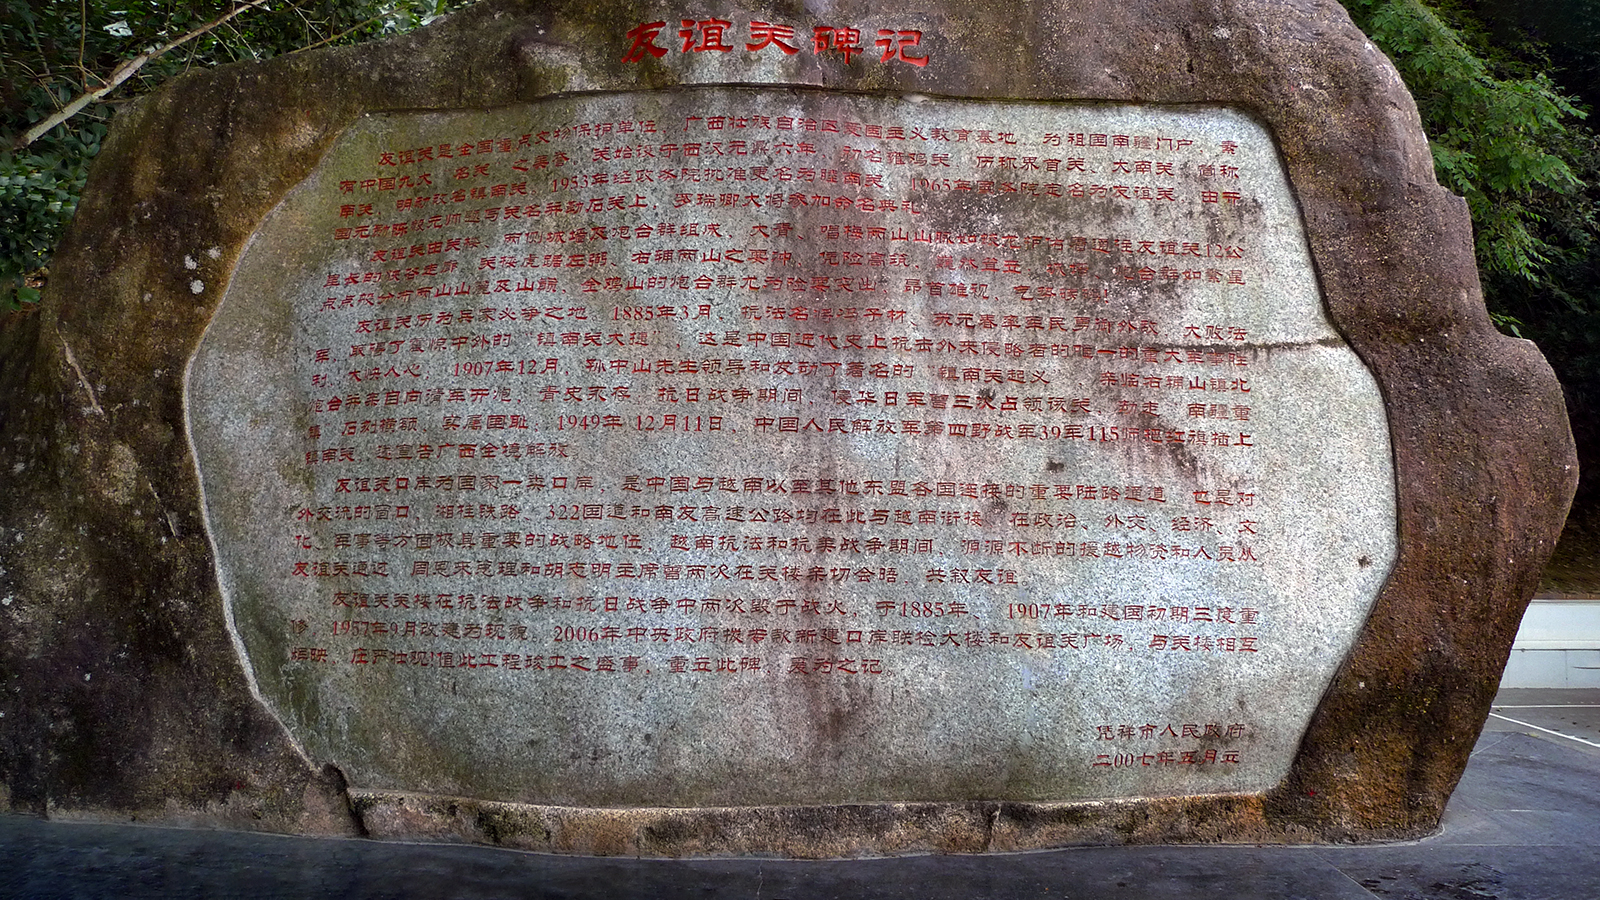 友谊关碑记
友谊关是全国重点文物保护单位，广西壮族自治区爱国主义教育基地，为祖国南疆门户，素
有中国九大"名关"之美誉。关始设于西汉元鼎六年，初名雍鸡关，历称界首关、大南关，简称
南关，明初改名镇南关。1953年经政务院批准更名为睦南关，1965年国务院定名为友谊关，由开
国元勋陈毅元帅题写关名并勒石关上，罗瑞卿大将参加命名典礼。
友谊关由关楼、两侧城墙及炮台群组成，大青、唱梅两山山脉如
通往友谊关12公
里长的峡谷走廊，关楼虎踞左弼、右辅两山之要冲，凭险高筑，巍然耸立，
炮台群如繁星
点点般分布两山山麓及山巅，金鸡山的炮台群尤为险要突出，昂首雄视，气势磅礴！
友谊关历为兵家必争之地，1885年3月，抗法名将冯子材、苏元春率军民勇御外敌，大败法
军，取得了震惊中外的"镇南关大捷"，这是中国近代史上抗击外来侵略者的唯一的重大军事胜
利，大快人心。1907年12月，孙中山先生领导和发动了著名的"镇南关起义"，亲临右辅山镇北
炮台并亲自向清军开炮，青史永存。抗日战争期间，侵华日军曾三次占领该关，劫走"南疆重
镇"石刻横额，实属国耻。1949年12月11日，中国人民解放军第四野战军39军115师把红旗插上
镇南关，遂宣告广西全境解放。
友谊关口岸为国家一类口岸，是中国与越南以至其他东盟各国连接的重要陆路通道，也是对
外交流的窗口，湘桂铁路、322国道和南友高速公路均在此与越南衔接，在政治、外交、经济、文
化、军事等方面极具重要的战略地位，越南抗法和抗美战争期间，源源不断的援越物资和人员从
友谊关通过，周恩来总理和胡志明主席曾两次在关楼亲切会晤，共叙友谊。
友谊关关楼在抗法战争和抗日战争中两次毁于战火，于1885年、1907年和建国初期三度重
修，1957年9月改建为现貌。2006年中央政府拨若款新建口岸联检大楼和友谊关广场，与关楼相互
辉映，庄严壮观!值此工程竣工之盛事，重立此碑，爰为之记。
凭祥市人民政府
二00七年五月元